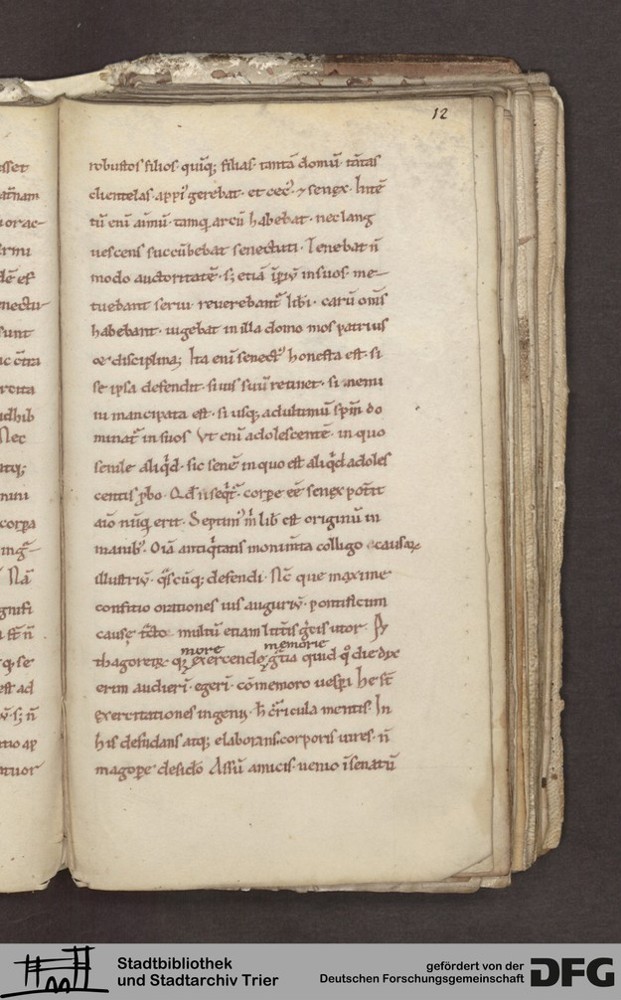 12
robustos filios · quinq; filias · tantā domū · tātas
clientelas · appi' gerebat · et cec' · ⁊ senex · Intē
tū enī animū · tamq̄ arcū habebat · nec lang
uescens succūbebat senectuti · Tenebat n̄
modo auctoritatē · s; etiā īperiū in suos · me-
tuebant serui · reuerebant' libi · carū om̄s
habebant · uigebat in illa domo mos patrius
et disciplina; Ita enī senect' honesta est · si
se ipsa defendit · si ius suū retinet · si nemi
ni mancipata est · si usq; ad ultimū sp̄m do
minat' in suos Vt enī adolescentē · in quo
senile aliqd · sic senē in quo est aliqd adoles
centis pbo · Qd' n seqt' · corpe eē senex potit
aīo nūq erit · Septim' m̄ lib est originū in
manib' · Oīa antiqtatis monimta colligo causaꝝ
illustriū · qscūq; defendi · Nc̄ que maxime
conficio orationes · ius auguriū · pontificum
cause tcto · multū etiam litt̄is gcis utor · Py
more memorie
thagoreꝝ · qꝫ exercende gtia quid qͦ die dix
erim audierī · egerī · cōmemoro uesꝑi He st̄
exercitationes ingenij · h̄ cricula mentis · In
his desudans atq; elaborans · corporis uires · n̄
magopere desido Assū amicis · uenio ī senatū
sset
atnam
uorac-
rmi
nectu-
sunt
rcita
dhib
Nec
atq;
nini
corpa
Nā
gnifi
st n̄
q · se
est ad
atuor
Stadtbibliothek
und Stadtarchiv Trier
gefördert von der
Deutschen Forschungsgemeinschaft
DFG